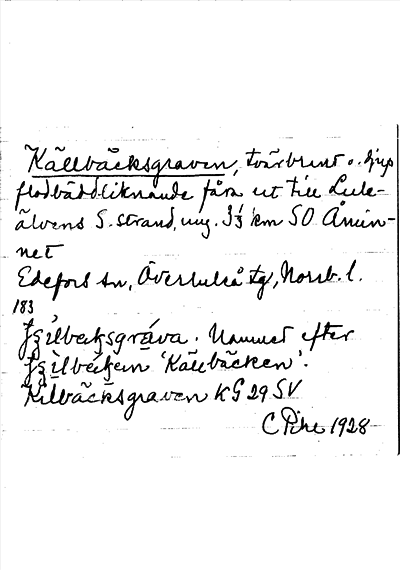 Källbäcksgraven, tvärbrant o. djup
flodbäddsliknande fåra ut till Lule-
älvens S. strand, ung. 3⅓ km SO Åmin-
net
Edefors sn, Överluleå tg, Norrb. l.
183
Namnet efter
'Källbäcken'.
Kilbäcksgraven KG 29 SV
C Pihl 1928